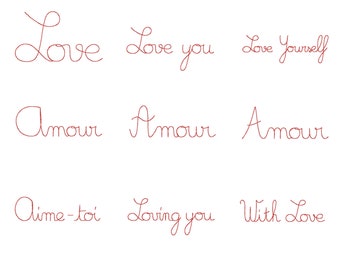 Love
Love you
Love Yourself
Amour
Amour
Amour
Aime-toi
Loving you
With Love